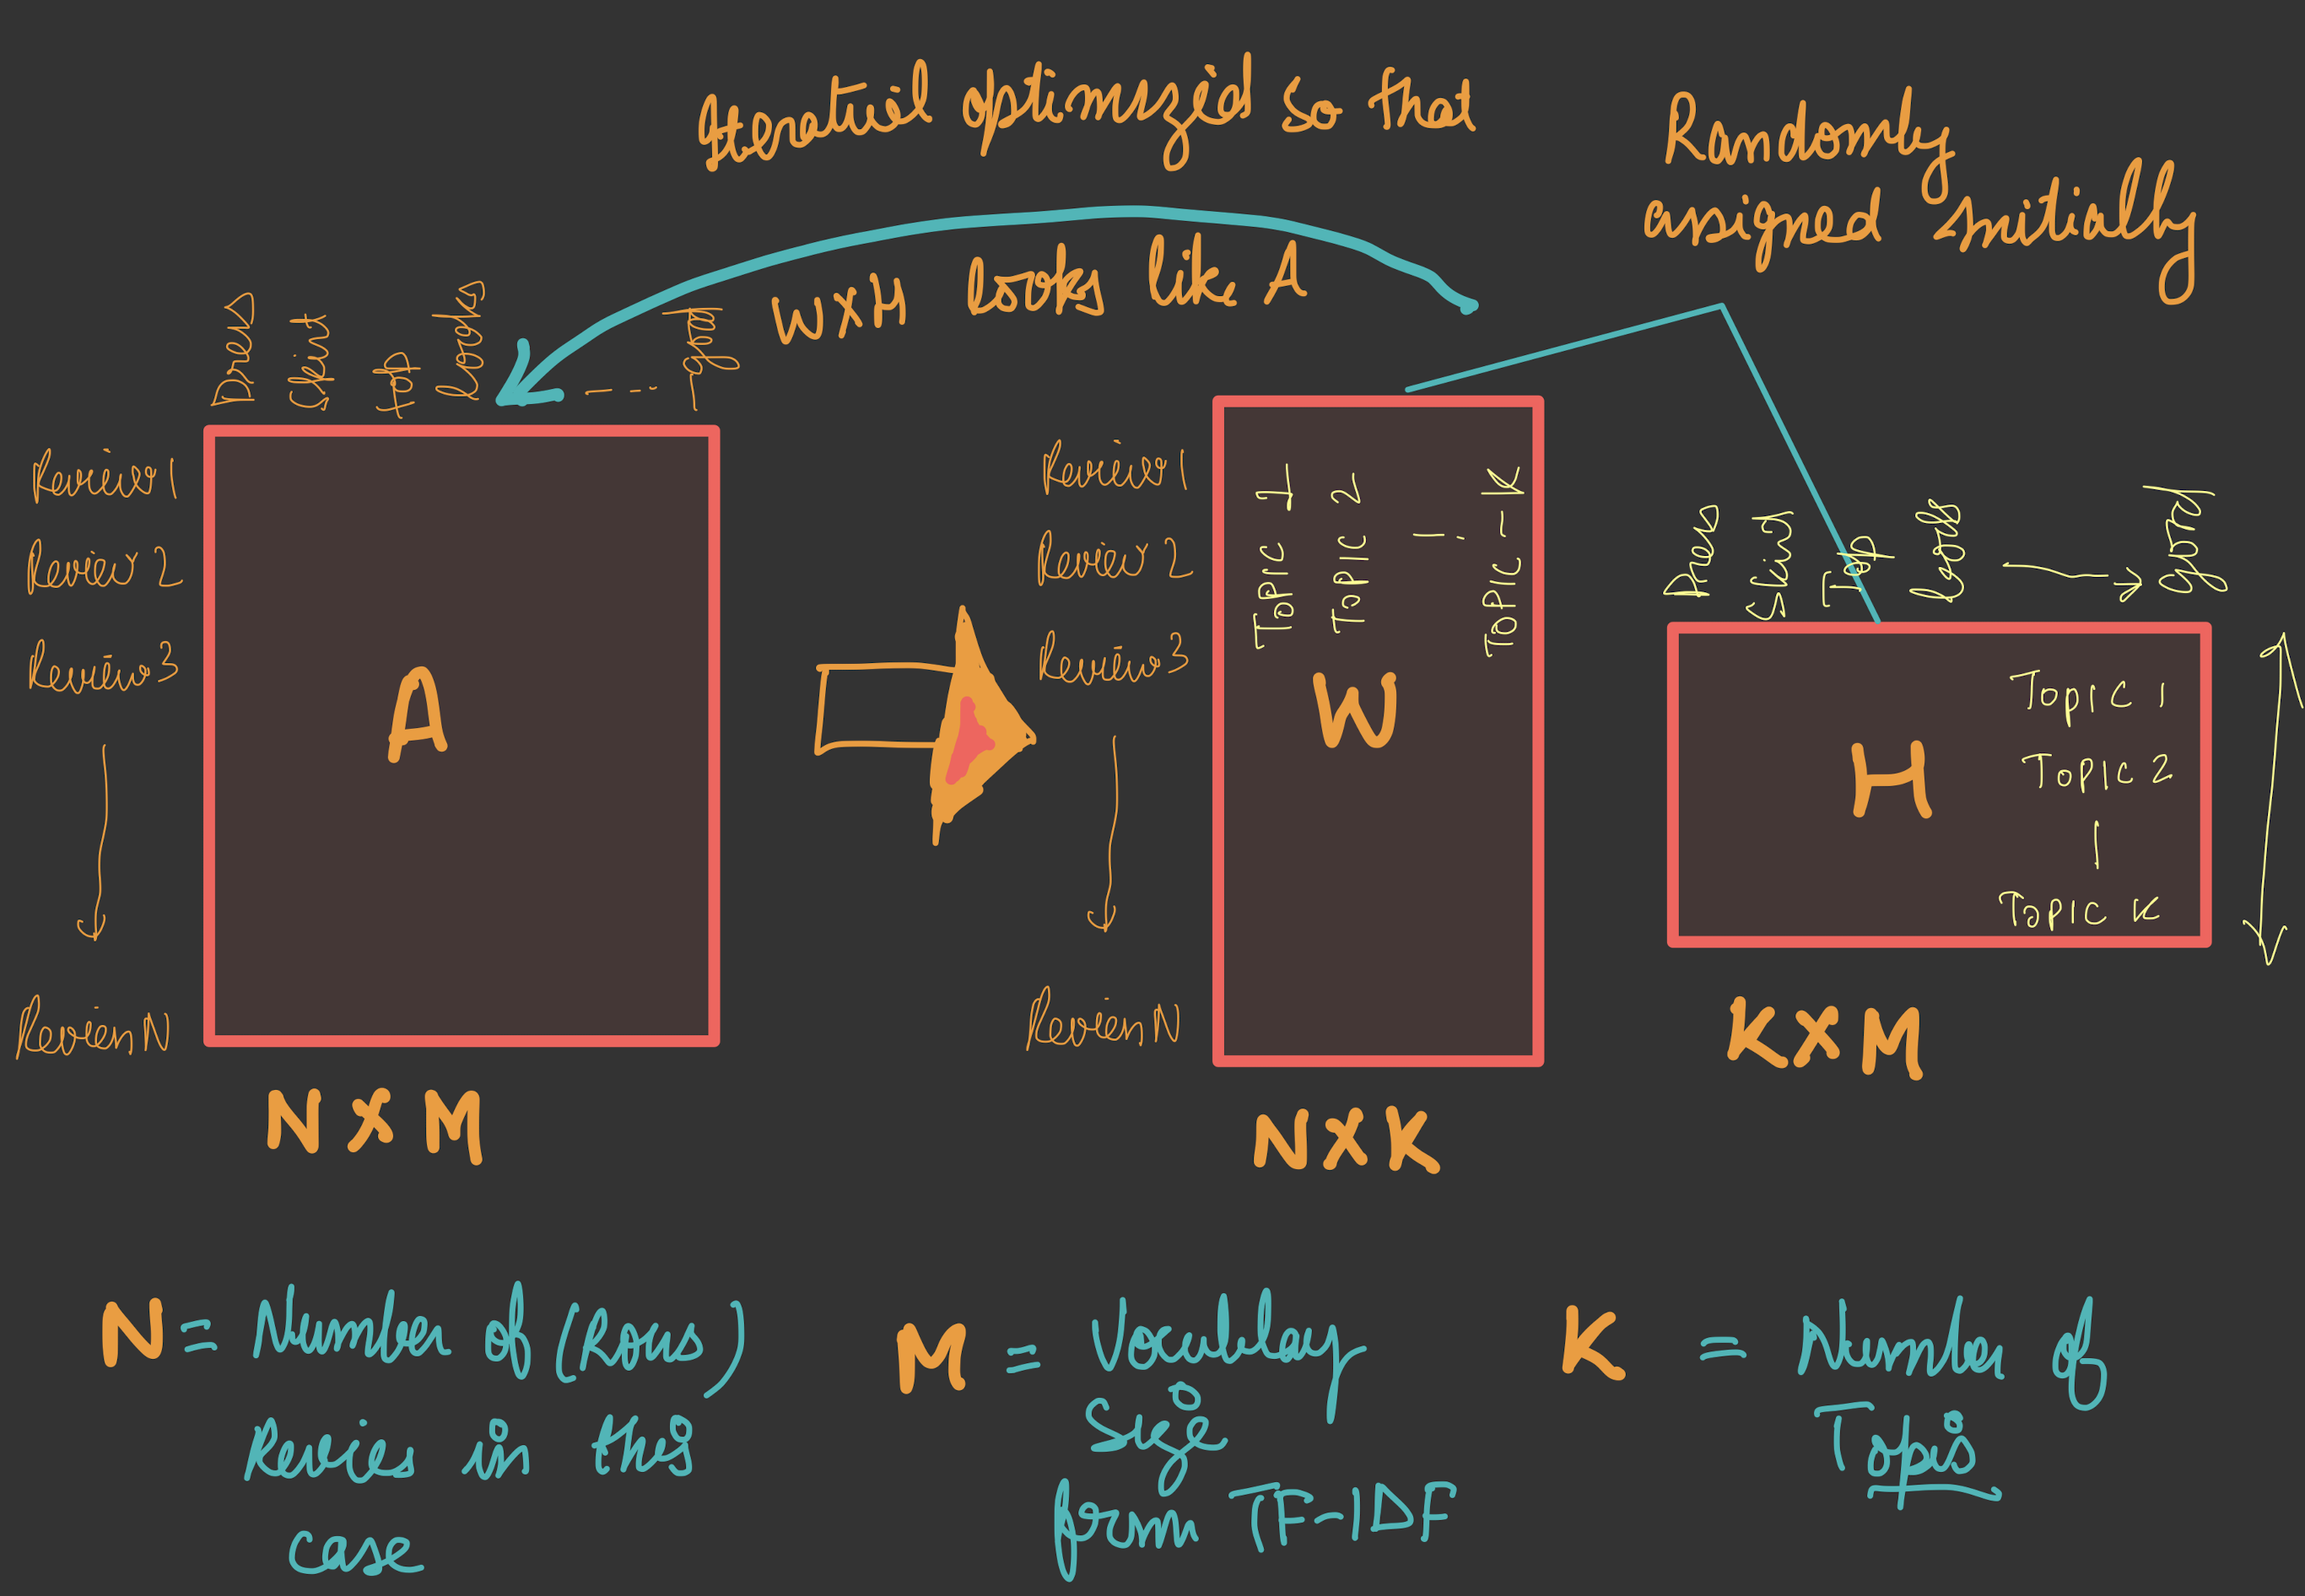 Iterated optimized so that
WXH looks like A
randomly
assigned initially
Dress
Shirt
Top
Review 1
Review 2
Review 3
Review N
A
N X M
Review 1
Review 2
Review 3
Review N
Topic 1
Topic 2
Topic - K
W
N X K
Dress
Shirt
Top
Topic 1
Topic 2
Topic K
H
K X M
N = Number of
Reviews in this
case
M = Vocabulary
Size
from TF-IDF
K = Number of
Topics